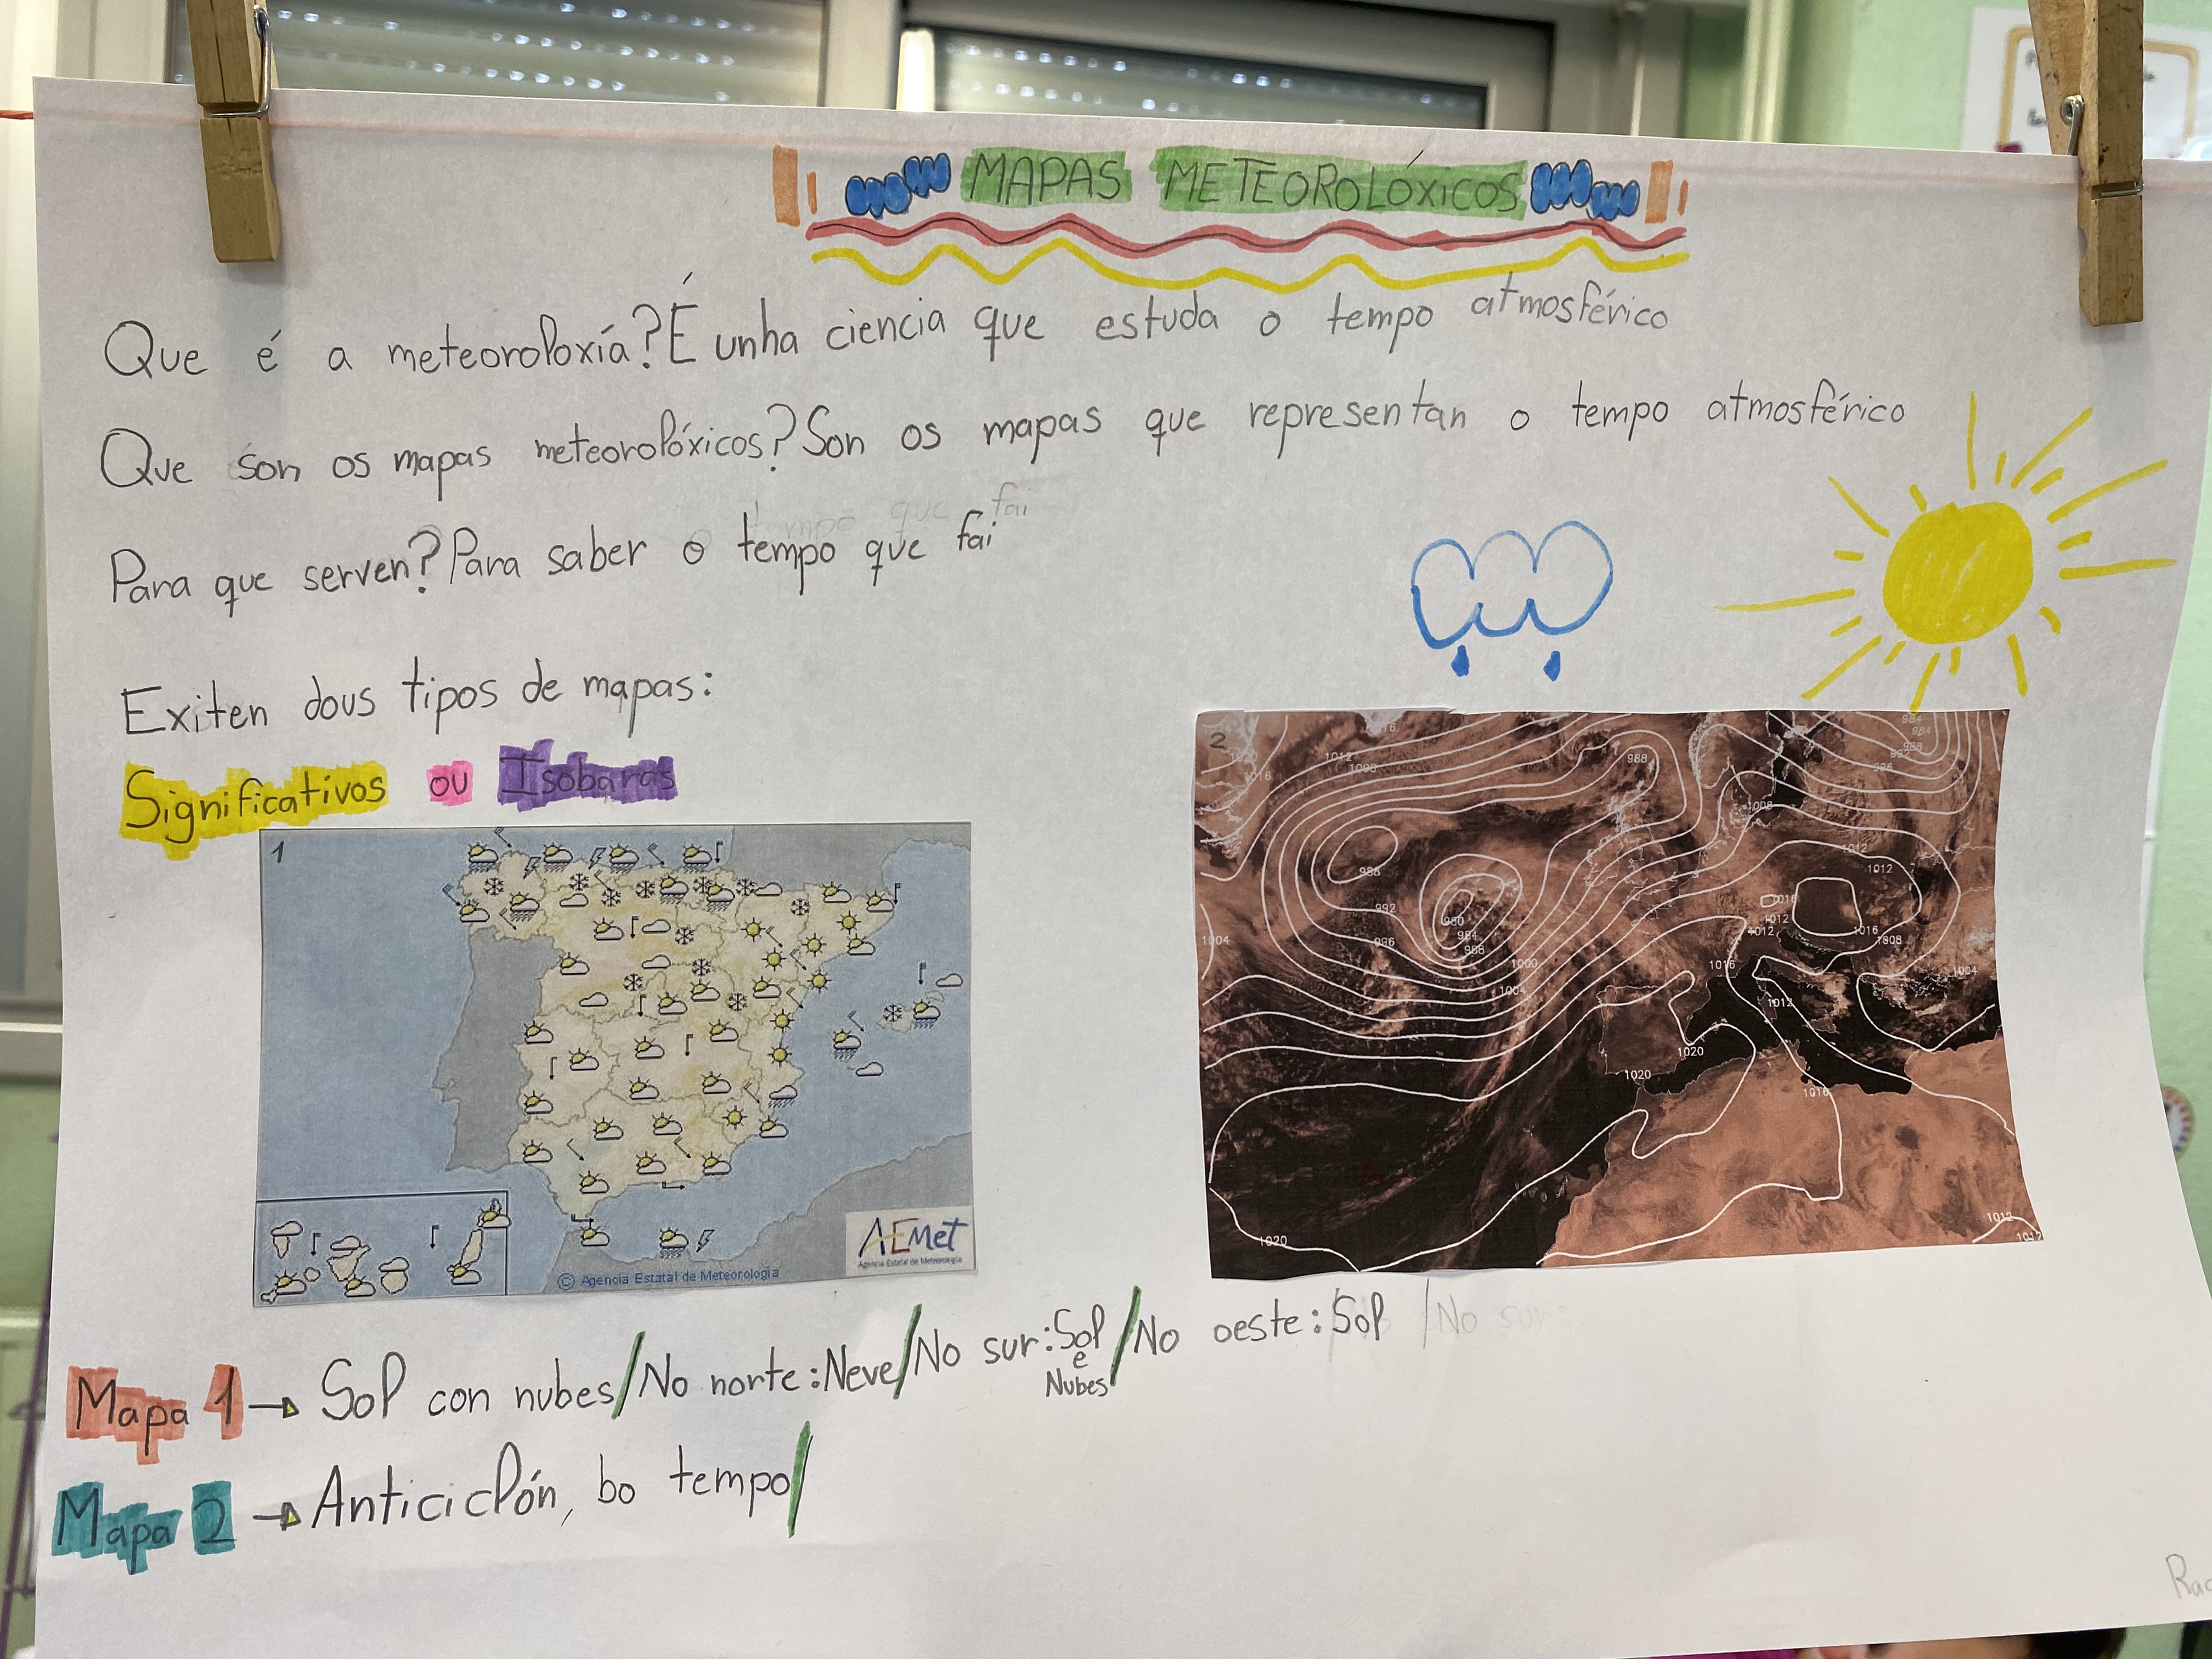 MAPAS METEOROLÓXICOS
Que é a meteoroloxía? É unha ciencia que estuda o tempo atmosférico
Que son os mapas meteorolóxicos? Son os mapas que representan o tempo atmosférico
Para que serven? Para saber o tempo que fai
Exiten dous tipos de mapas:
Significativos ou Isobaras
1
AEMet
Agencia Estatal de Meteorología
© Agencia Estatal de Meteorología
2
1020
1016
1012
1008
988
984
988
996
1008
1012
1012
988
992
996
980
984
988
1000
1004
1004
1016
1012
1012
1016
1008
1004
1016
1012
1020
1020
1016
1020
1012
Mapa 1 → Sol con nubes/No norte: Neve/No sur: Sol e Nubes/No oeste: Sol /No sur:
Mapa 2 → Anticiclón, bo tempo/